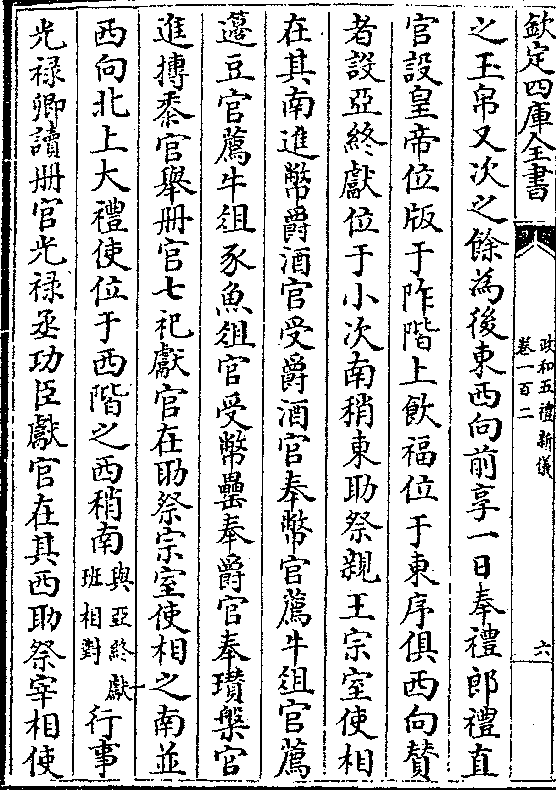 欽定四庫全書
政和五禮新儀
卷一百二
六
之玉帛又次之餘為後東西向前享一日奉禮郎禮直
官設皇帝位版于阼階上飲福位于東序俱西向賛
者設亞終獻位于小次南稍東助祭親王宗室使相
在其南進幣爵酒官受爵酒官奉幣官薦牛俎官薦
籩豆官薦牛俎豕魚俎官受幣罍奉爵官奉瓚槃官
進摶黍官舉册官七祀獻官在助祭宗室使相之南並
西向北上大禮使位于西階之西稍南與亞終獻班相對行事
光禄卿讀册官光禄丞功臣獻官在其西助祭宰相使